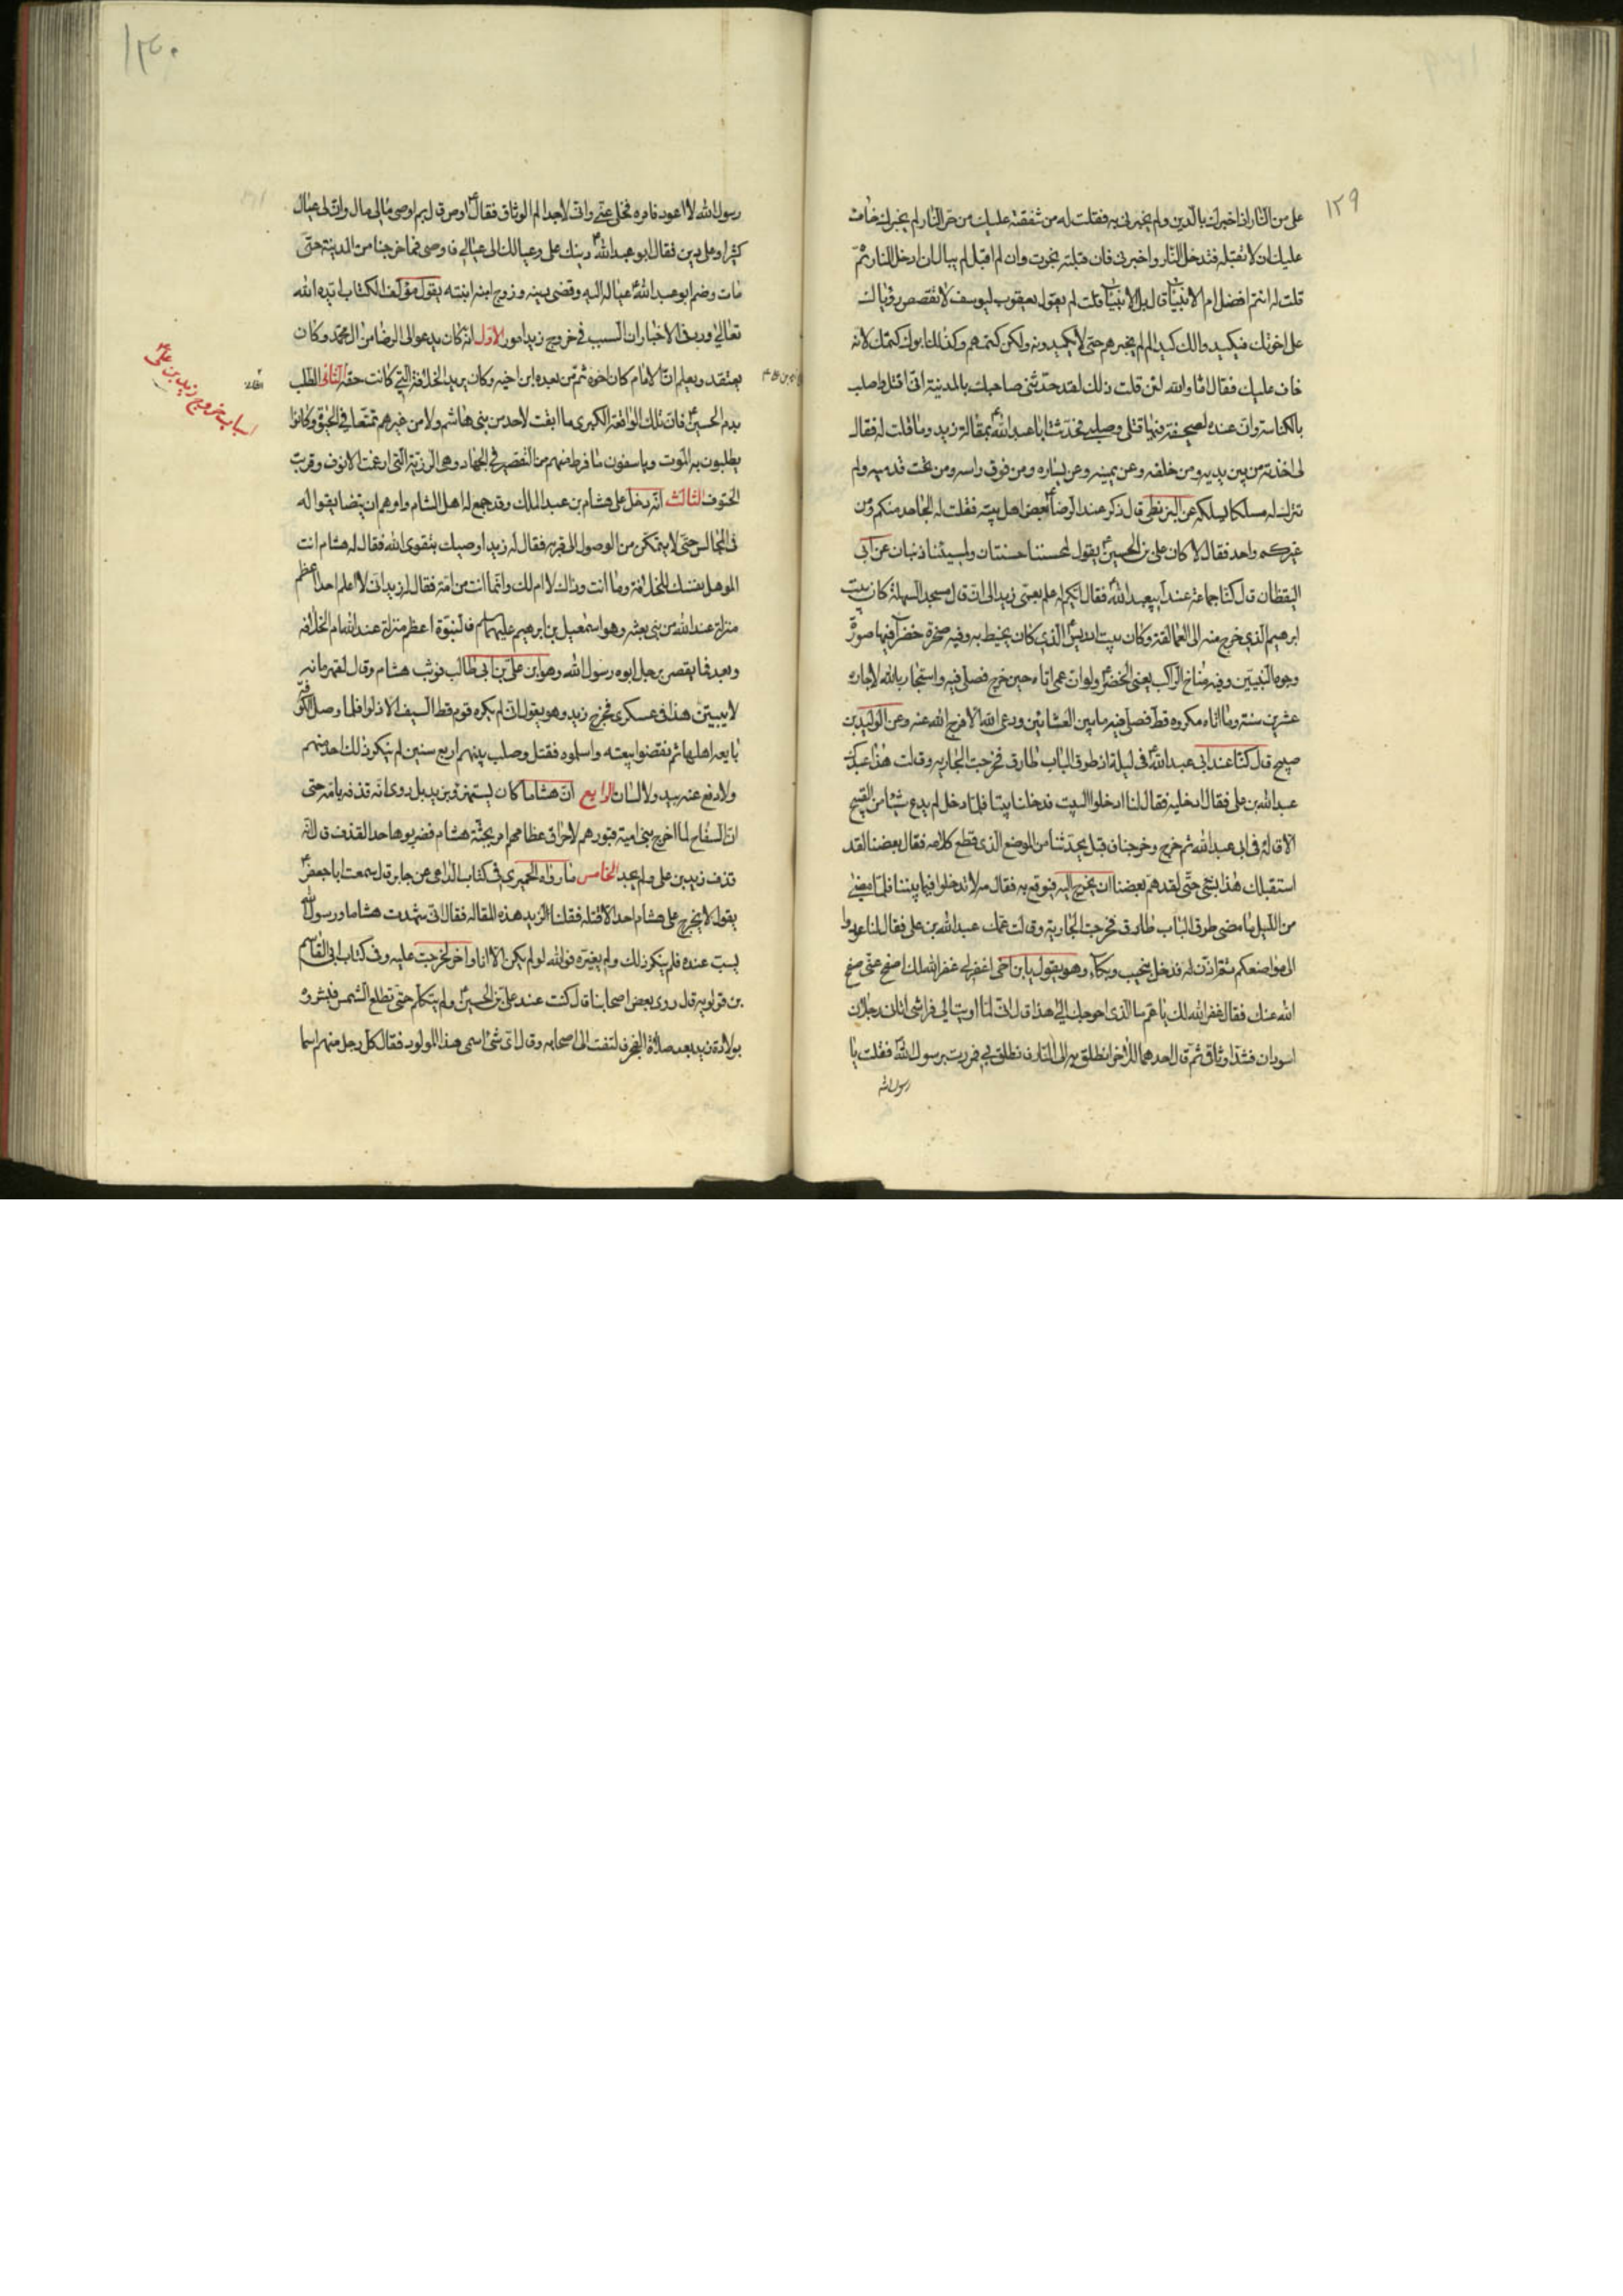 ١٢٩
على من النار ان اخبرك بالدين ولم يخبرنى به فقلت له من شفقته عليك من حر النار لم يخبرك خاف
عليك ان لا تقبله فتدخل النار واخبرنى فان قبلته نجوت وان لم اقبل لم يبال ان ادخل النار ثم
قلت له انتم افضل ام الانبياء قال بل الانبياء قلت لم يقول يعقوب ليوسف لا تقصص رؤياك
على اخوتك فيكيدوا لك كيدا لم لم يخبرهم حتى لا يكيدونه ولكن كتمهم وكذلك ابوك كتمك لانه
خاف عليك فقال اما والله لئن قلت ذلك لقد حدثنى صاحبك بالمدينة انى اقتل واصلب
بالكناسة وان عنده لصحيفة فيها قتلى وصلبى فحدثت ابا عبد الله ع بمقالة زيد وما قلت له فقال
لى اخذته من بين يديه ومن خلفه وعن يمينه وعن يساره ومن فوق راسه ومن تحت قدميه ولم
تترك له مسلكا يسلكه عن البزنطى قال ذكر عند الرضا ع بعض اهل بيته فقلت له الجاحد منكم ومن
غيركم واحد فقال لا كان على بن الحسين ع يقول لمحسننا حسنتان ولمسيئنا ذنبان عن ابى
اليقظان قال كنا جماعة عند ابيعبد الله ع فقال ايكم له علم بعمى زيد الى ان قال مسجد السهلة كان بيت
ابرهيم الذى خرج منه الى العمالقة وكان بيت ادريس ع الذى كان يخيط به وفيه صخرة خضراء فيها صورة
وجوه النبيين وفيه مناخ الراكب يعنى الخضر ع ولو ان عمى اتاه حين خرج فصلى فيه واستجار بالله لاجاره
عشرين سنة وما اتاه مكروه قط فصلى فيه ما بين العشائين ودعى الله الا فرج الله عنه وعن الوليد بن
صبيح قال كنا عند ابى عبد الله ع فى ليلة اذ طرق الباب طارق فخرجت الجارية وقالت هذا عمك
عبد الله بن على فقال ادخليه فقال لنا ادخلوا البيت فدخلنا بيتا فلما دخل لم يدع شيئا من القبيح
الا قاله فى ابى عبد الله ثم خرج وخرجنا فاقبل يحدثنا من الموضع الذى قطع كلامه فقال بعضنا لقد
استقبلك هذا بشئ حتى لقد هم بعضنا ان يخرج اليه فيوقع به فقال مه لا تدخلوا فيما بيننا فلما مضى
من الليل ما مضى طرق الباب طارق فخرجت الجارية وقالت عمك عبد الله بن على فقال لنا عودوا
الى مواضعكم ثم اذن له فدخل بنحيب وبكاء وهو يقول يا بن اخى اغفر لى غفر الله لك اصفح عنى صفح
الله عنك فقال غفر الله لك يا عم ما الذى احوجك الى هذا قال انى لما اويت الى فراشى اتانى رجلان
اسودان فشدا وثاقى ثم قال احدهما للاخر انطلق به الى النار فانطلق بى فمررت برسول الله فقلت يا
رسول الله
١٣٠
رسول الله لا اعود فامره فخلى عنى وانى لاجد الم الوثاق فقال ع اوص قال بم اوصى مالى مال وان لى عيال
كثيرا وعلى دين فقال ابو عبد الله ع دينك على وعيالك الى عيالى فاوصى فما خرجنا من المدينة حتى
مات وضم ابو عبد الله ع عياله اليه وقضى دينه وزوج ابنه ابنته يقول مؤلف الكتاب ايده الله
تعالى ورد فى الاخبار ان السبب فى خروج زيد امور الاول انه كان يدعو الى الرضا من ال محمد وكان
يعتقد ويعلم ان الامام كان اخوه ثم من بعده ابن اخيه وكان يريد الخلافة التى كانت حقه الثانى الطلب
بدم الحسين ع فان تلك الواقعة الكبرى ما ابقت لاحد من بنى هاشم ولا من غيرهم تمتعا فى الحيوة وكانوا
يطلبون به الموت وياسفون ما فرط منهم من التقصير فى الجهاد وهى الرزية التى ارغمت الانوف وقربت
الحتوف الثالث انه دخل على هشام بن عبد الملك وقد جمع له اهل الشام وامرهم ان يتضايقوا له
فى المجالس حتى لا يتمكن من الوصول الى قربه فقال له زيد اوصيك بتقوى الله فقال له هشام انت
الموهل نفسك للخلافة وما انت وذاك لا ام لك وانما انت من امة فقال له زيد انى لا اعلم احدا اعظم
منزلة عند الله من نبى بعثه وهو اسمعيل بن ابرهيم عليهما السلام فالنبوة اعظم منزلة عند الله ام الخلافة
وبعد فما يقصر برجل ابوه رسول الله وهو ابن على بن ابى طالب فوثب هشام وقال لقهرمانه
لا يبيتن هذا فى عسكرى فخرج زيد وهو يقول انه لم يكره قوم قط السيف الا ذلوا فلما وصل الكوفة
بايعه اهلها ثم نقضوا بيعته واسلموه فقتل وصلب بينهم اربع سنين لم ينكر ذلك احد منهم
ولا دفع عنه بيد ولا لسان الرابع ان هشاما كان يستهزئ بزيد بل روى انه قذفه بامه حتى
ان السفاح لما اخرج بنى امية من قبورهم لاحراق عظامهم امر بجثة هشام فضربوها حد القذف قال انه
قذف زيد بن على ولم يحد الخامس ما رواه الحميرى فى كتاب الدلائل عن جابر قال سمعت ابا جعفر ع
يقول لا يخرج على هشام احد الا قتله فقلنا لزيد هذه المقالة فقال انى شهدت هشاما ورسول الله
يسب عنده فلم ينكر ذلك ولم يغيره فوالله لو لم يكن الا انا واخر لخرجت عليه وفى كتاب ابى القاسم
بن قولويه قال روى بعض اصحابنا قال كنت عند على بن الحسين ع ولم يتكلم حتى تطلع الشمس فبشروه
بولادة زيد بعد صلاة الفجر فالتفت الى اصحابه وقال اى شئ اسمى هذا المولود فقال كل رجل منهم اسما
اسباب خروج زيد بن على ع